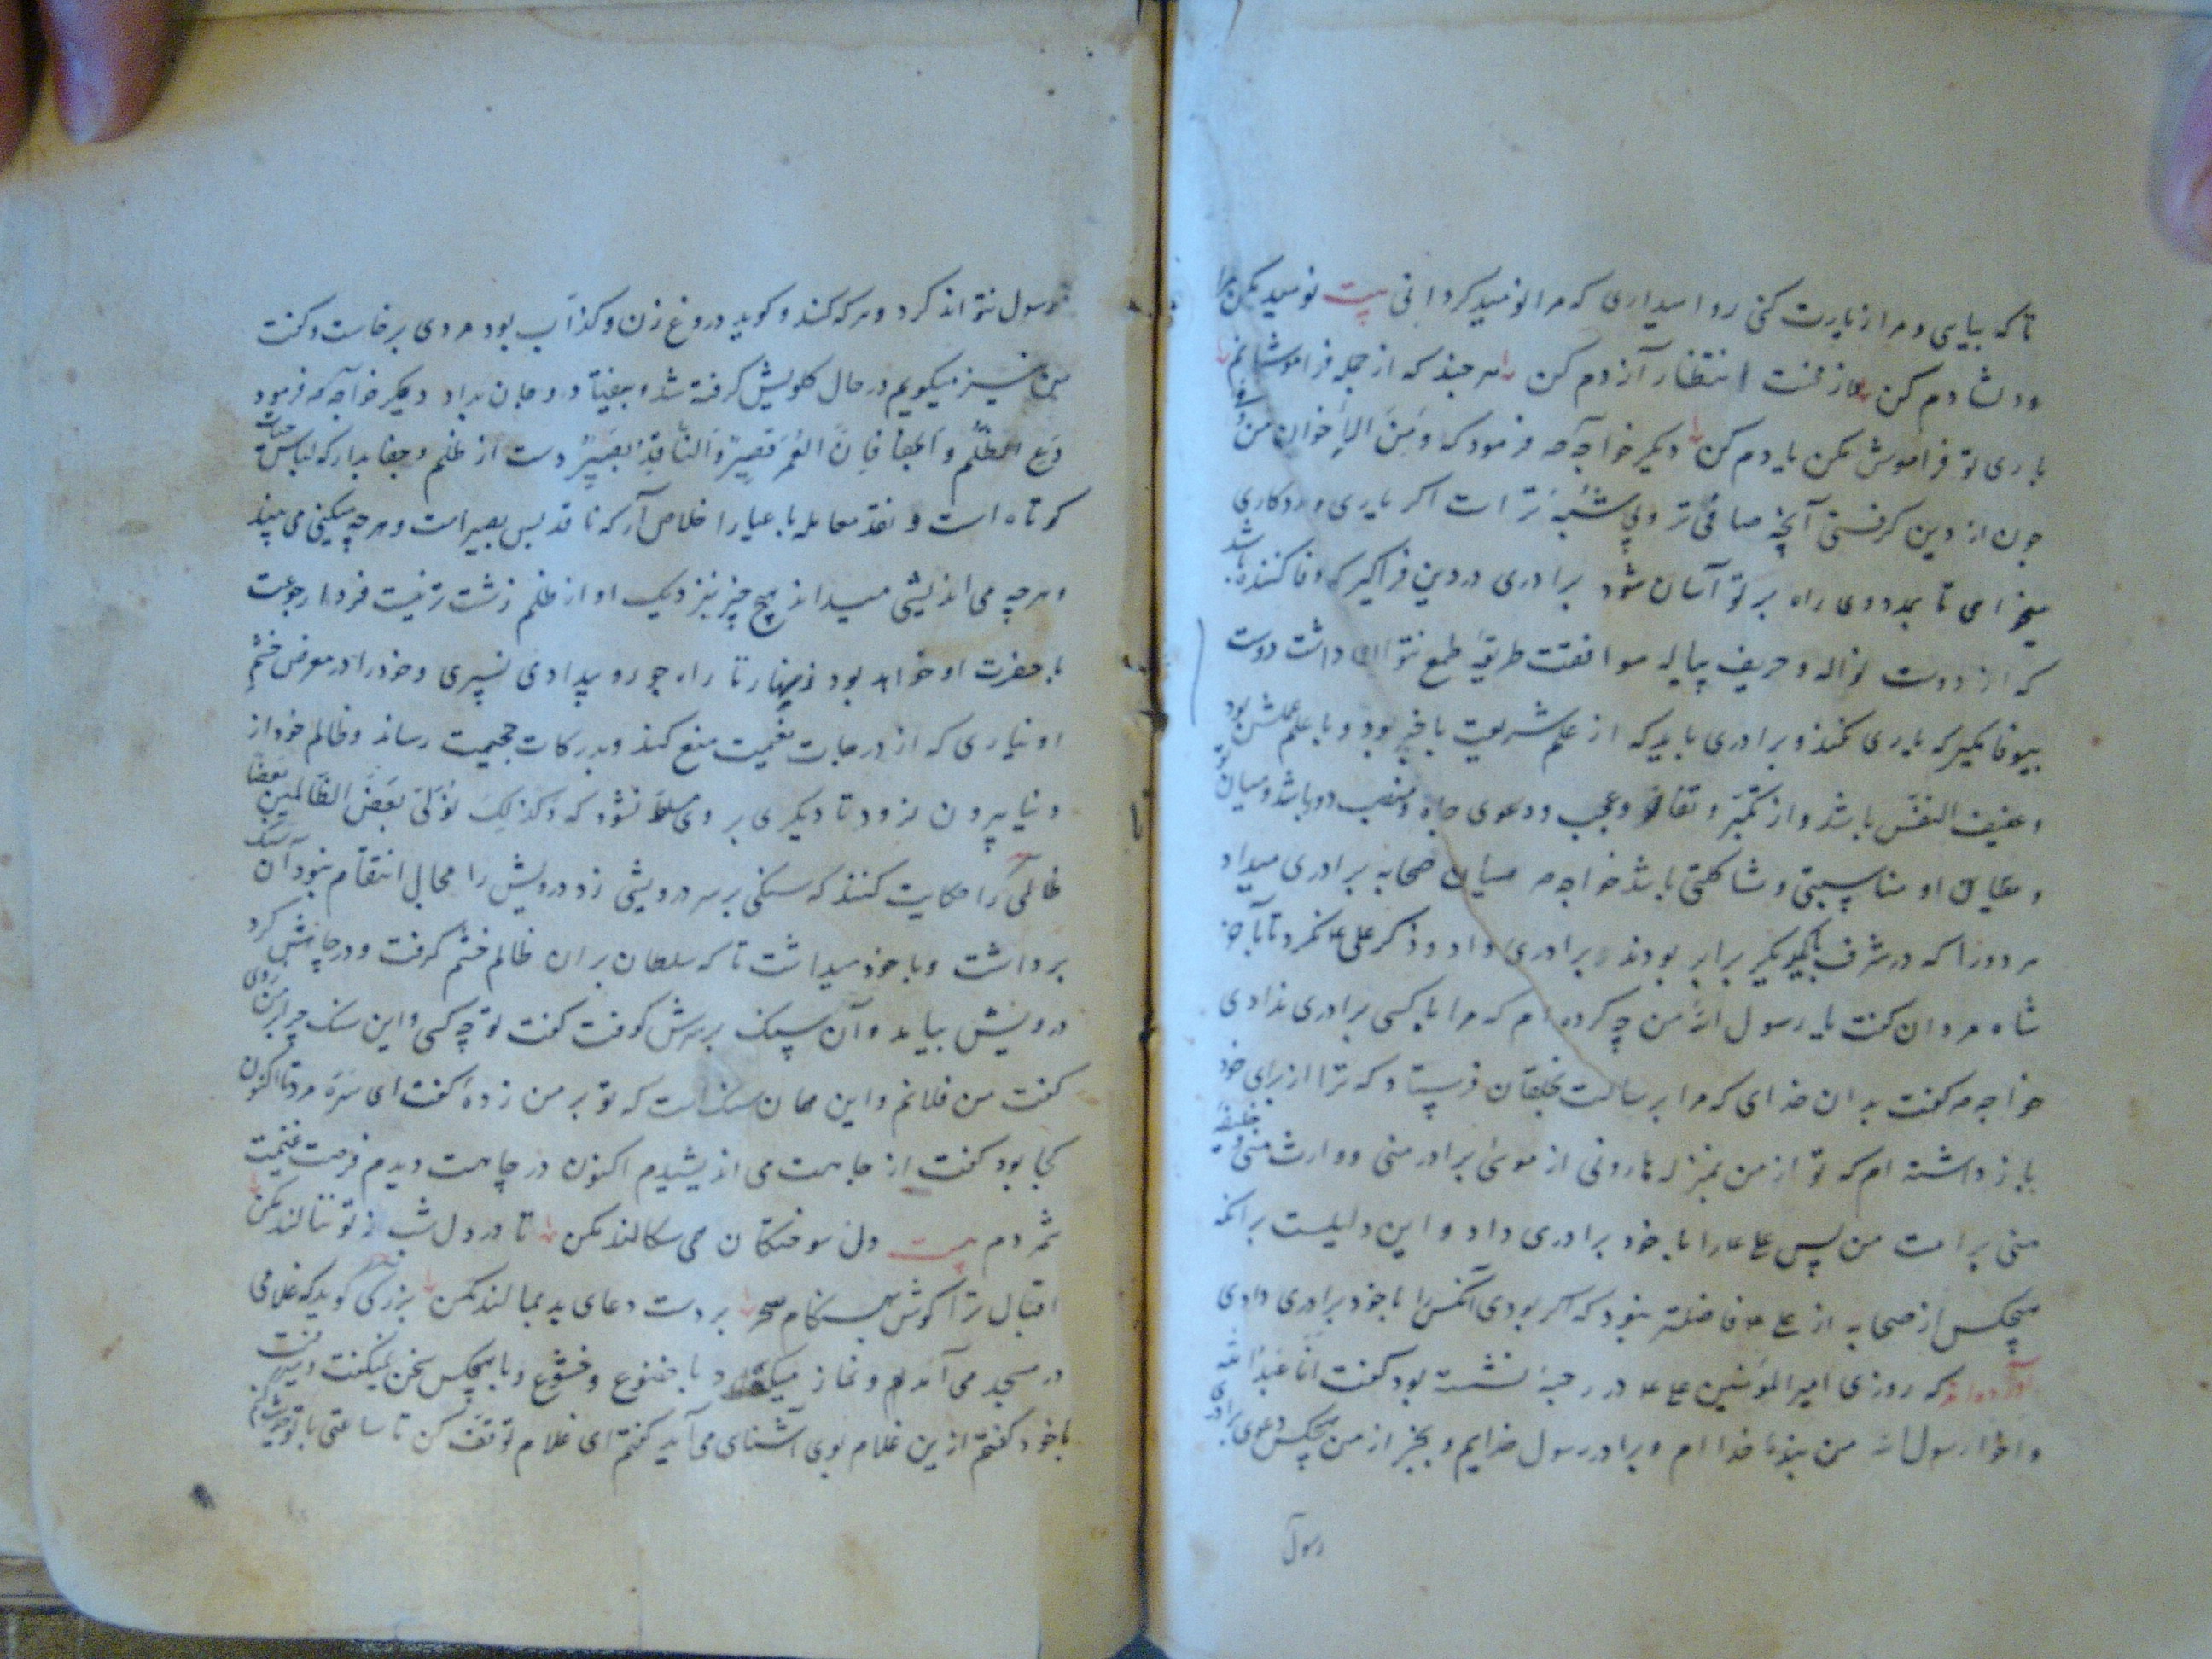 تا که بیایی و مرا زیارت کنی روا میداری که مرا نومید کردانی بیت نومید مکن مرا
و دلشادم کن از محنت انتظار آزادم کن هر چند که از جمله فراموشانم
باری تو فراموش مکن یادم کن دیکر خواجه فرمود که و من الاخوان من
چون از دین کرفتی آنچه صافی تر و بی شبهه تر است اکر یاری و مددکاری
میخواهی تا بمدد وی راه بر تو آسان شود برادری در دین فراکیر که وفا کننده باشد
که از دوست نواله و حریف پیاله موافقت طریق طمع نتوان داشت دوست
بیوفا مکیر که یاری نکند و برادری باید که از علم شریعت با خبر بود و با علم عملش بود
و عفیف النفس باشد و از تکبر و تفاخر و عجب و دعوی جاه و منصب دور باشد و میان تو
و میان او مناسبتی و مشاکلتی باشد خواجه میان صحابه برادری میداد
هر دو را که در شرف بیکدیکر برابر بودند برادری داد و ذکر علی نکرد تا بآخر
شاه مردان کفت یا رسول الله من چه کرده ام که مرا با کسی برادری ندادی
خواجه کفت بدان خدای که مرا برسالت بخلقان فرستاد که ترا از برای خود
باز داشته ام که تو از من بمنزله هارونی از موسی برادر منی و وارث منی و خلیفه
منی بر امت من پس علی را با خود برادری داد و این دلیلست بر آنکه
هیچکس از صحابه از علی فاضلتر نبود که اکر بودی آنکس را با خود برادری دادی
آورده اند که روزی امیر المؤمنین علی در رحبه نشسته بود کفت انا عبد الله
و اخو رسول الله من بنده خداام و برادر رسول خدایم و بجز از من هیچکس دعوی برادری
رسول
رسول نتواند کرد و هر که کند و کوید دروغ زن و کذاب بود مردی برخاست و کفت
من نیز میکویم در حال کلویش کرفته شد و بیفتاد و جان بداد دیکر خواجه فرمود
دع الظلم و الجفا فان العمر قصیر و الناقد بصیر دست از ظلم و جفا بدار که لباس حیات
کوتاه است و نقد معامله با عیار اخلاص آر که ناقد بس بصیر است و هر چه میکنی می بیند
و هر چه می اندیشی میداند هیچ چیز نزدیک او از ظلم زشت تر نیست فردا رجوعت
با حضرت او خواهد بود زینهار تا راه جور و بیدادی نسپری و خود را در معرض خشم
او نیاری که از درجات نعیمت منع کند و بدرکات جحیمت رساند و ظالم خود از
دنیا بیرون نرود تا دیکری بر وی مسلط نشود که و کذلک نولی بعض الظالمین بعضا
ظالمی را حکایت کنند که سنکی بر سر درویشی زد درویش را مجال انتقام نبود آن سنک
برداشت و با خود میداشت تا که سلطان بر آن ظالم خشم کرفت و در چاهش کرد
درویش بیامد و آن سنک بر سرش کوفت کفت تو چه کسی و این سنک چرا بر من زدی
کفت من فلانم و این همان سنکست که تو بر من زده کفت ای سره مرد تا اکنون
کجا بود کفت از جاهت می اندیشیدم اکنون در چاهت دیدم فرصت غنیمت
شمردم بیت دل سوختکان می سکالند مکن تا در دل شب ز تو ننالند مکن
اقبال ترا کوش بهنکام سحر بر دست دعای بد بمالند مکن بزرکی کوید که غلامی
در مسجد می آمد و نماز میکرد با خضوع و خشوع و با هیچکس سخن نمیکفت و میرفت
با خود کفتم ازین غلام بوی آشنای می آید کفتم ای غلام توقف کن تا ساعتی با تو